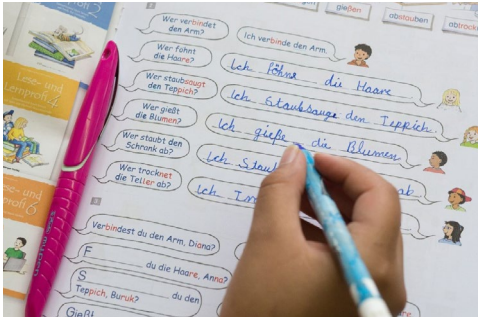 gießen
abstauben
abtrock
Wer verbindet
den Arm?
Ich verbinde den Arm.
Wer föhnt
die Haare?
Ich föhne die Haare
Wer staubsaugt
den Teppich?
Ich Staubsauge den Teppich.
Wer gießt
die Blumen?
Ich gieße die Blumen
Wer staubt den
Schrank ab?
Ich Staub ab
Wer trocknet
die Teller ab?
Ich
Verbindest du den Arm, Diana?
F du die Haare, Anna?
S du den
Teppich, Buruk?
Gießt
Lese- und
Lernprofi 4
Lese- und
Lernprofi 6